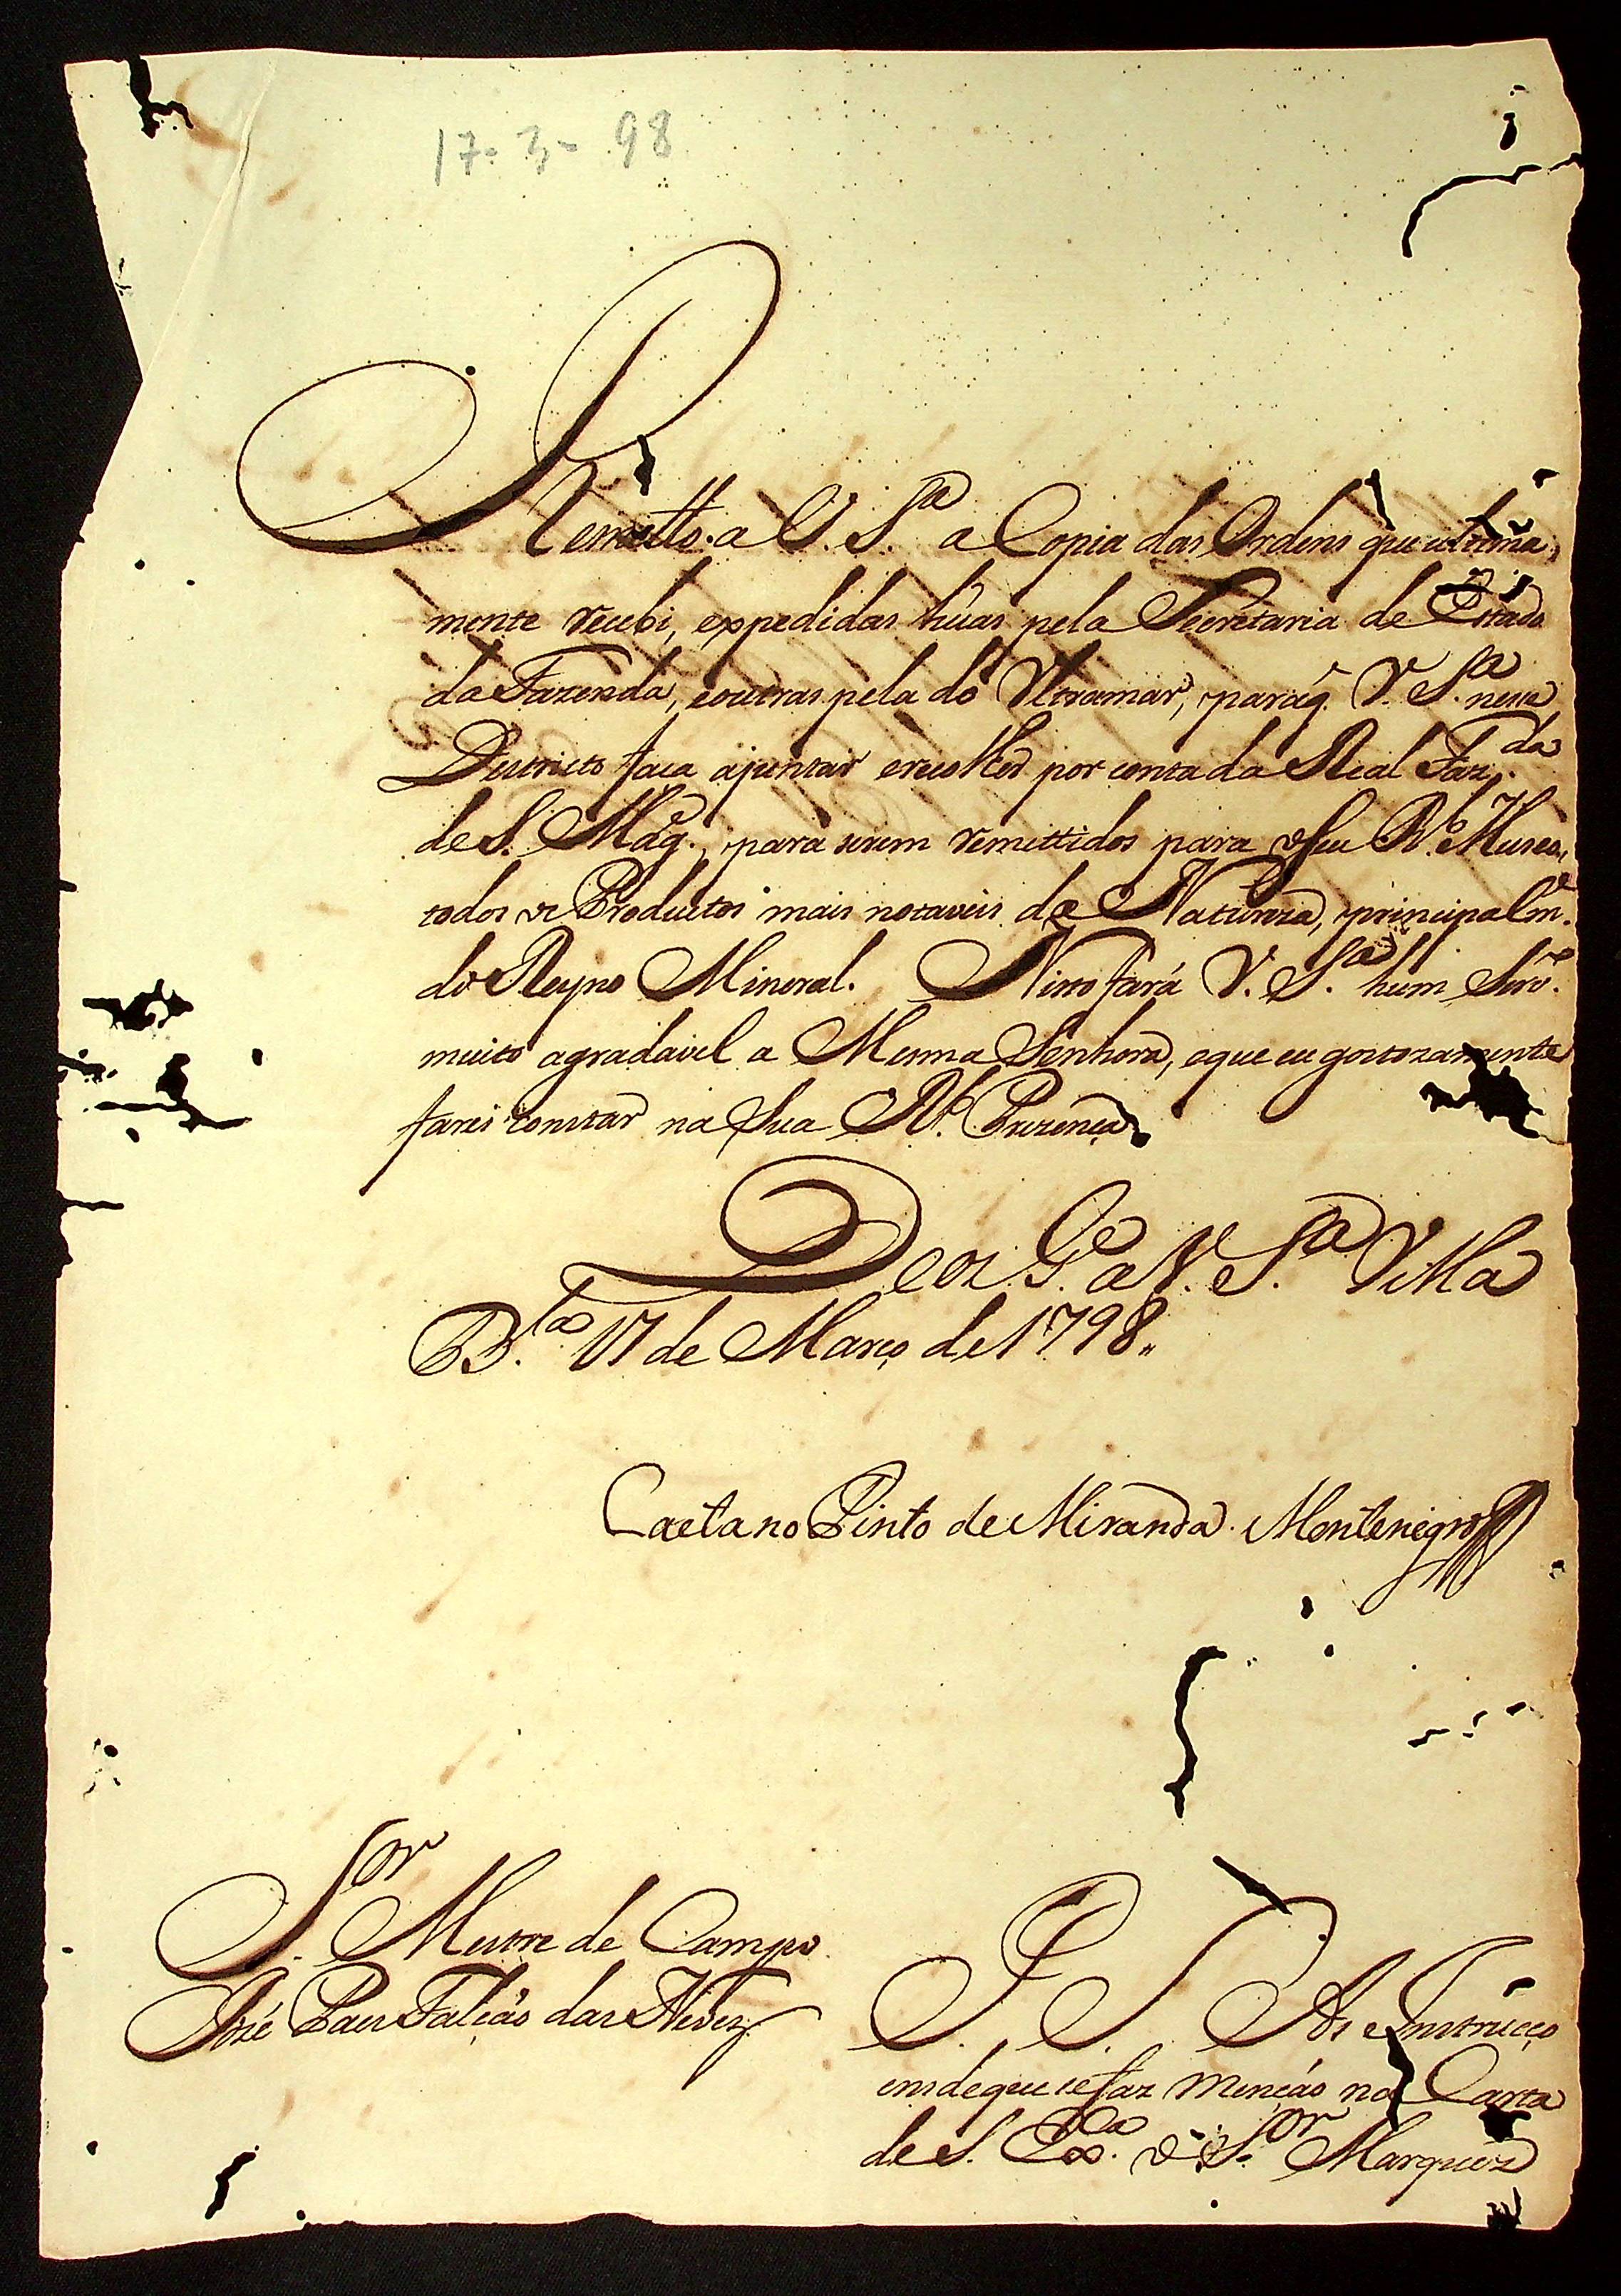 17-3-98
Remetto a V. S.ª a Copia das Ordens que ultima-
mente recebi, expedidas húas pela Secretaria de Estado
da Fazenda, eoutras pela do Ultramar, paraq̃ V. S.ª nesse
Districto faça ajuntar erecolher por conta da Real Faz.da
de S. Mag.e, para serem remettidos para oSeu R.l Museo,
todos os Productos mais notaveis da Natureza, principalm.e
do Reyno Mineral. Nisto fará V. S.ª hum Serv.o
muito agradavel a Mesma Senhora, eque eu gostozamente
farei constar na Sua R.l Prezença.
Deos G.e a V. S.ª Villa
B.la 17 de Março de 1798.
Caetano Pinto de Miranda Montenegro
S.or Mestre de Campo
José Paes Falcão das Neves
P. S. As Instrucço
ens deque sefaz menção na Carta
de S. Ex.ª o S.or Marquez